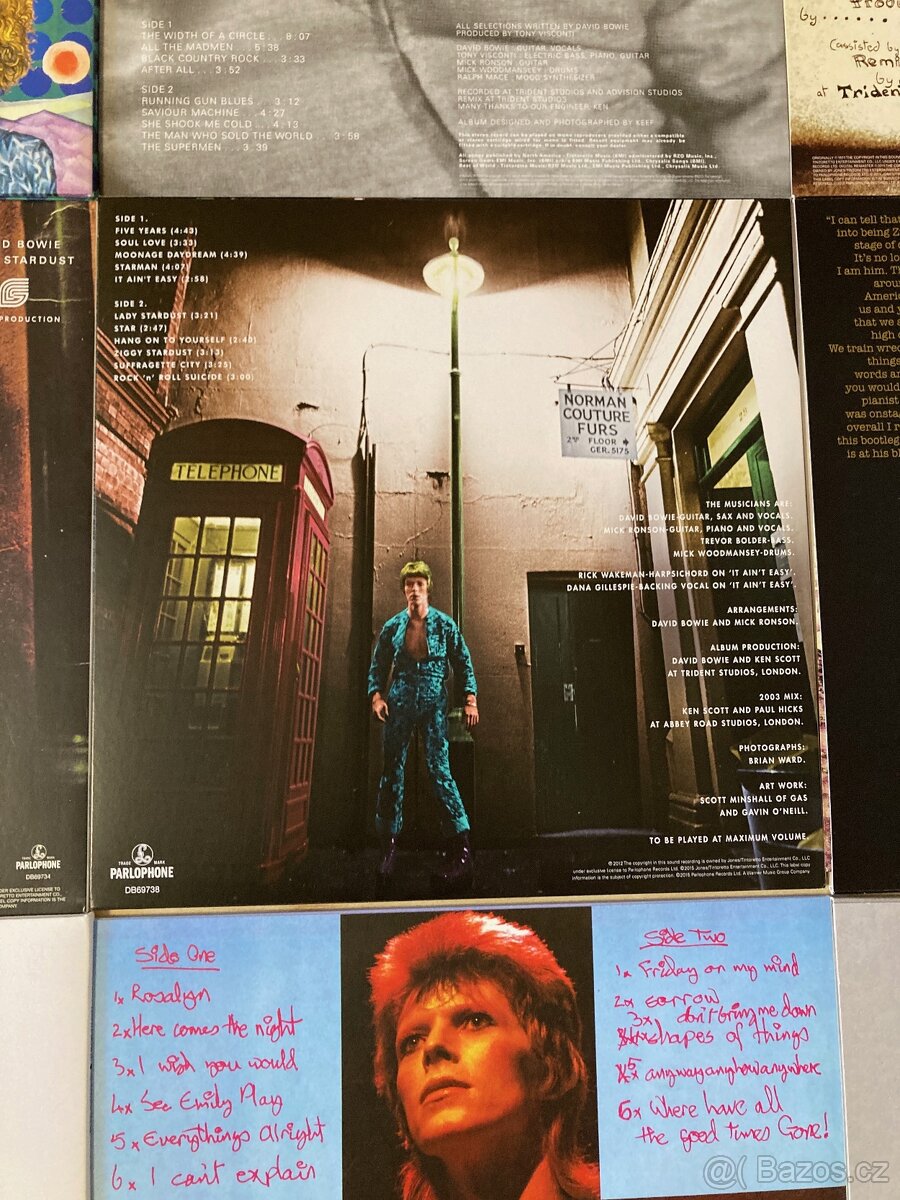 SIDE 1
THE WIDTH OF A CIRCLE... 8/07
ALL THE MADMEN... 5/38
BLACK COUNTRY ROCK... 3/33
AFTER ALL... 3/52
SIDE 2
RUNNING GUN BLUES... 3/12
SAVIOUR MACHINE... 4/27
SHE SHOOK ME COLD... 4/13
THE MAN WHO SOLD THE WORLD... 3/58
THE SUPERMEN... 3/39
ALL SELECTIONS WRITTEN BY DAVID BOWIE
PRODUCED BY TONY VISCONTI
DAVID BOWIE/GUITAR, VOCALS
TONY VISCONTI/ELECTRIC BASS, PIANO, GUITAR
MICK RONSON/GUITAR
MICK WOODMANSEY/DRUMS
RALPH MACE/MOOG SYNTHESIZER
RECORDED AT TRIDENT STUDIOS AND ADVISION STUDIOS
REMIX AT TRIDENT STUDIOS
MANY THANKS TO OUR ENGINEER, KEN
ALBUM DESIGNED AND PHOTOGRAPHED BY KEEF
by......
(assisted by
at Trident
D BOWIE
STARDUST
PRODUCTION
TRADE MARK
PARLOPHONE
DB69734
SIDE 1.
FIVE YEARS (4:43)
SOUL LOVE (3:33)
MOONAGE DAYDREAM (4:39)
STARMAN (4:07)
IT AIN'T EASY (2:58)
SIDE 2.
LADY STARDUST (3:21)
STAR (2:47)
HANG ON TO YOURSELF (2:40)
ZIGGY STARDUST (3:13)
SUFFRAGETTE CITY (3:25)
ROCK 'n' ROLL SUICIDE (3:00)
TELEPHONE
NORMAN
COUTURE
FURS
2ND FLOOR
GER. 5175
THE MUSICIANS ARE:
DAVID BOWIE-GUITAR, SAX AND VOCALS.
MICK RONSON-GUITAR, PIANO AND VOCALS.
TREVOR BOLDER-BASS.
MICK WOODMANSEY-DRUMS.
RICK WAKEMAN-HARPSICHORD ON 'IT AIN'T EASY'.
DANA GILLESPIE-BACKING VOCAL ON 'IT AIN'T EASY'.
ARRANGEMENTS:
DAVID BOWIE AND MICK RONSON.
ALBUM PRODUCTION:
DAVID BOWIE AND KEN SCOTT
AT TRIDENT STUDIOS, LONDON.
2003 MIX:
KEN SCOTT AND PAUL HICKS
AT ABBEY ROAD STUDIOS, LONDON.
PHOTOGRAPHS:
BRIAN WARD.
ART WORK:
SCOTT MINSHALL OF GAS
AND GAVIN O'NEILL.
TO BE PLAYED AT MAXIMUM VOLUME.
TRADE MARK
PARLOPHONE
DB69738
℗ 2012 The copyright in this sound recording is owned by Jones/Tintoretto Entertainment Co., LLC
under exclusive license to Parlophone Records Ltd. © 2015 Jones/Tintoretto Entertainment Co., LLC. This label copy
information is the subject of copyright protection. ©2015 Parlophone Records Ltd. A Warner Music Group Company
"I can tell that
into being Z
stage of
It's no lo
I am him. Th
arou
Ameri
us and y
that we a
high
We train wre
things
words an
you would
pianist
was onsta
overall I r
this bootleg
is at his bl
Side One
1x Rosalyn
2x Here comes the night
3x I wish you would
4x See Emily Play
5x Everythings alright
6x I can't explain
Side Two
1x Friday on my mind
2x sorrow
3x don't bring me down
shapes of things
5x anywayanyhowanywhere
6x Where have all
the good times Gone!
@( Bazos.cz